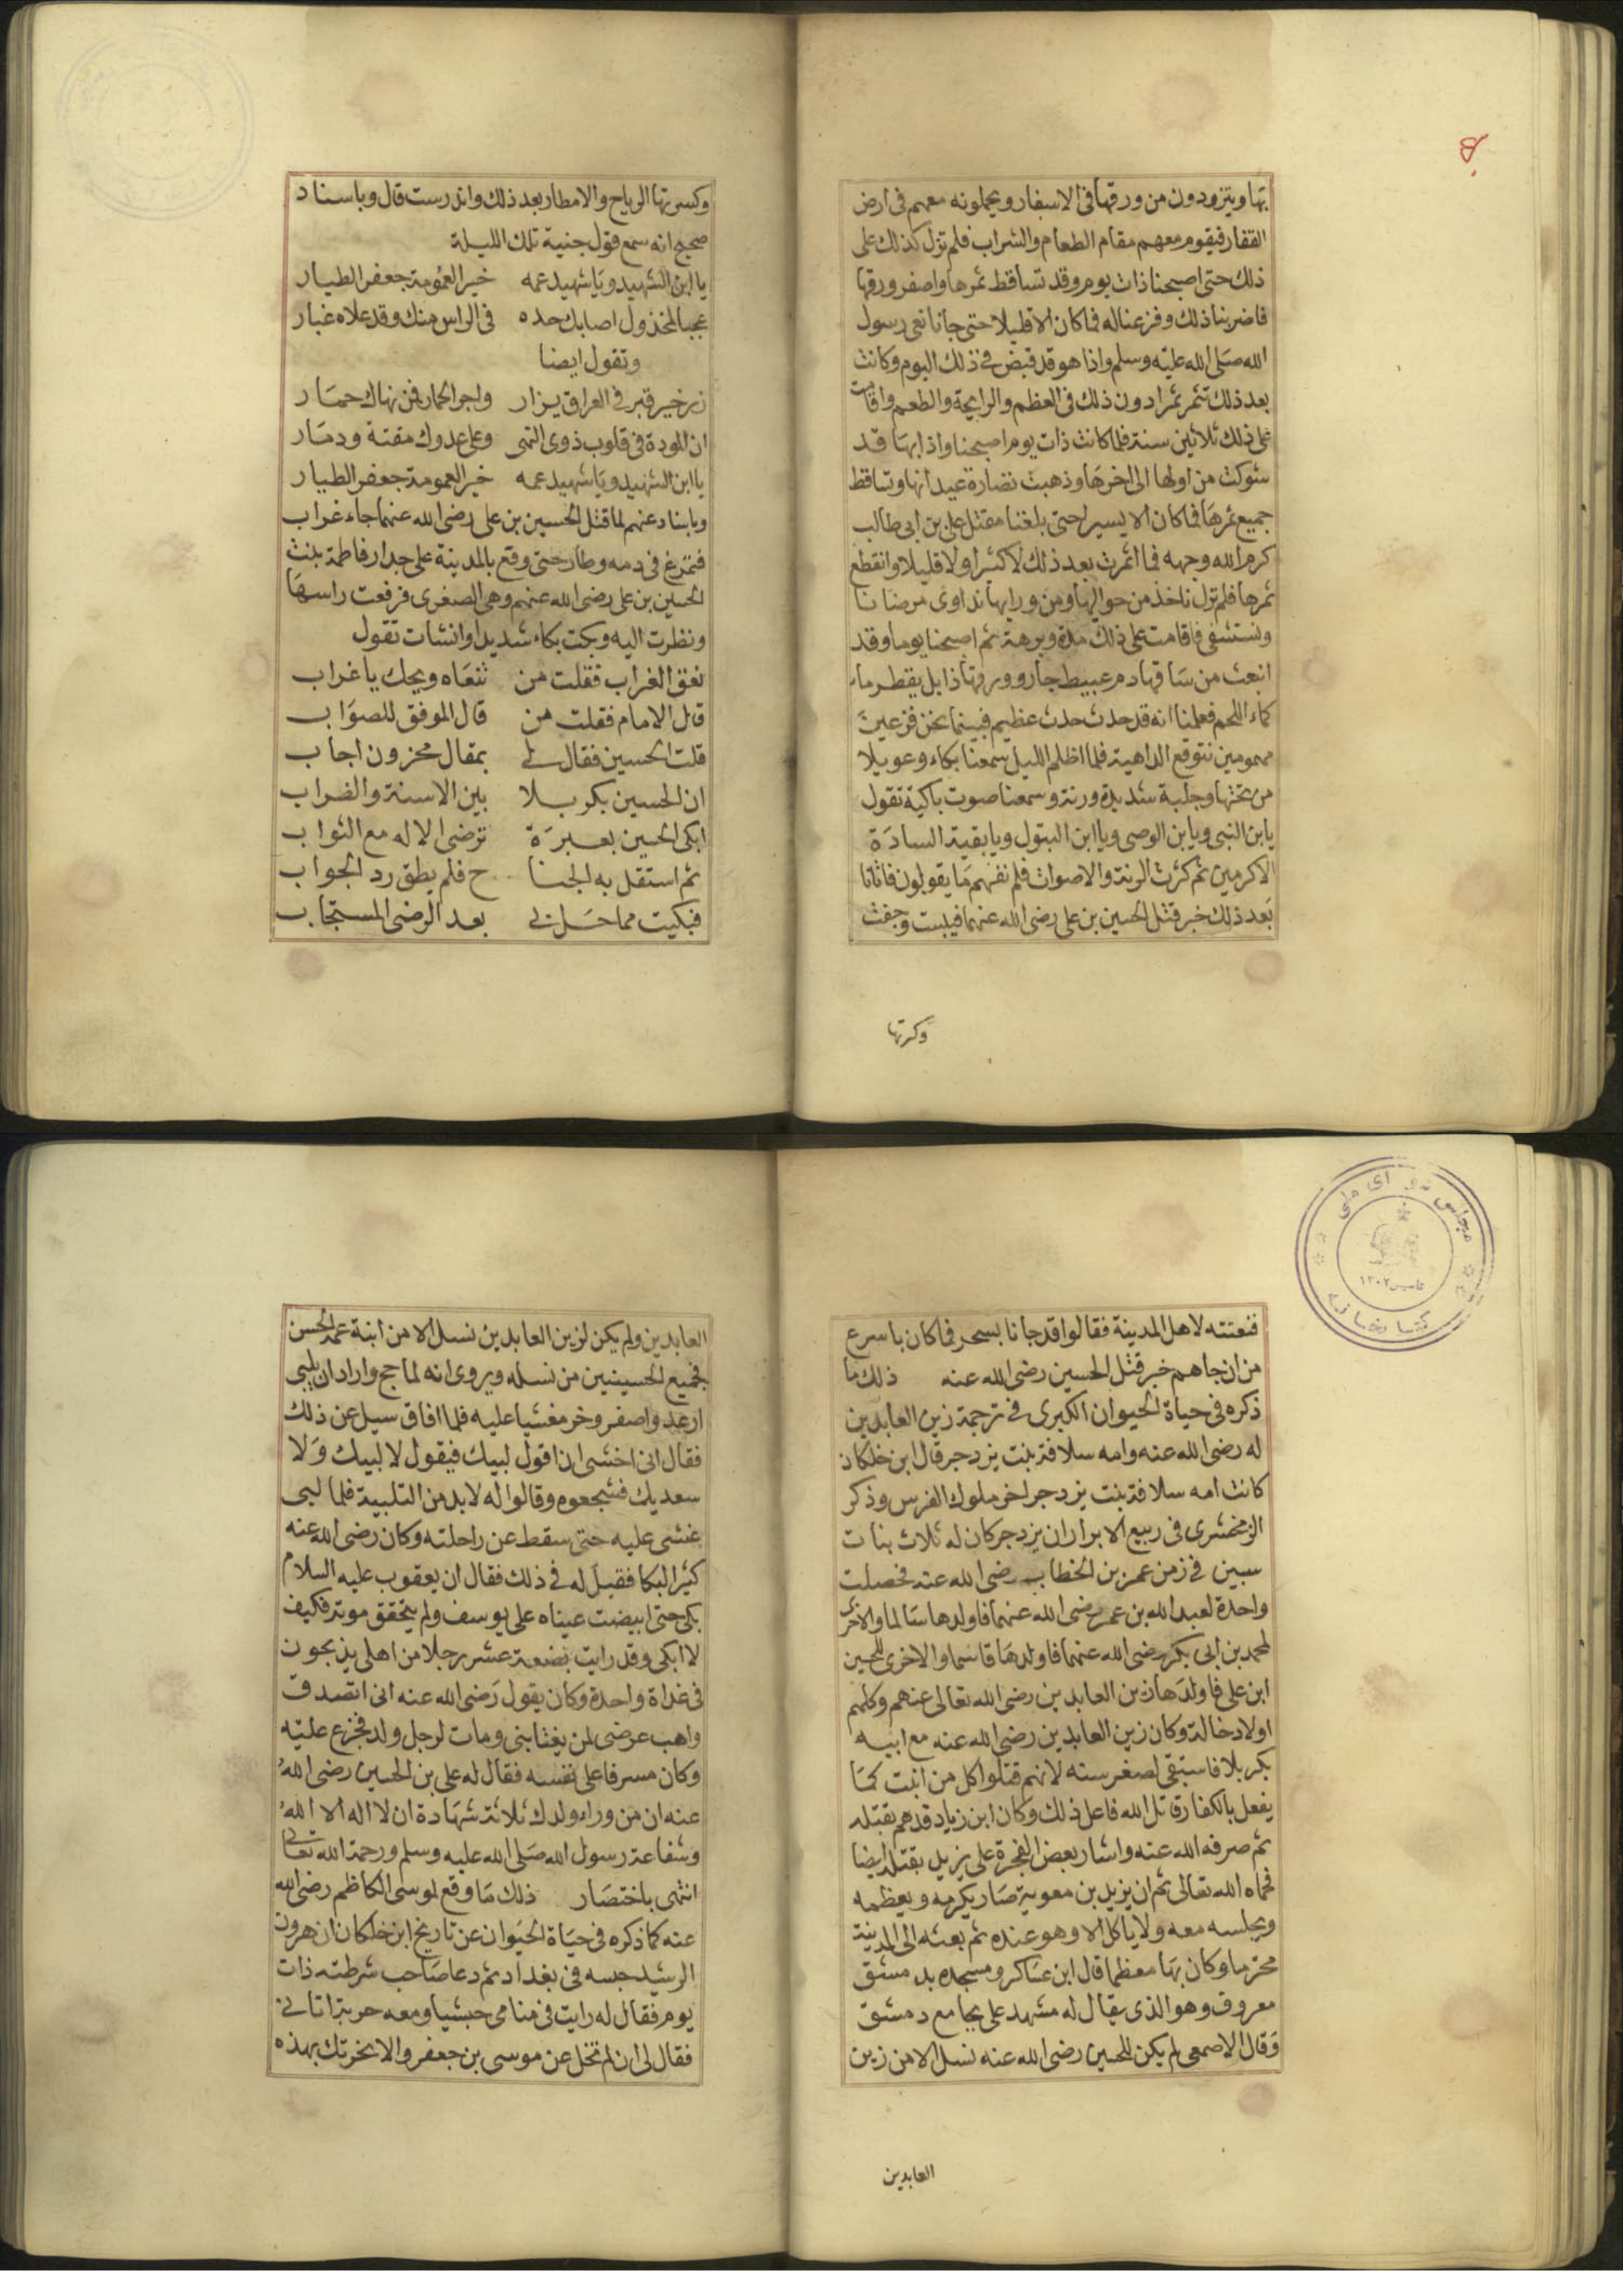 بها ويتزودون من ورقها فى الاسفار ويحملونه معهم فى ارض
القفار فيقوم معهم مقام الطعام والشراب فلم تزل كذلك على
ذلك حتى اصبحنا ذات يوم وقد تساقط ثمرها واصفر ورقها
فاضربنا ذلك وفزعنا له فما كان الا قليلا حتى جانا نعى رسول
الله صلى الله عليه وسلم واذا هو قد قبض فى ذلك اليوم وكانت
بعد ذلك تثمر ثمرا دون ذلك فى العظم والرايحة والطعم واقامت
على ذلك ثلاثين سنة فلما كانت ذات يوم اصبحنا واذا بها قد
شوكت من اولها الى اخرها وذهبت نضارة عيدانها وتساقط
جميع ثمرها فما كان الا يسير احتى بلغنا مقتل على بن ابى طالب
كرم الله وجهه فما اثمرت بعد ذلك لا كثيرا ولا قليلا وانقطع
ثمرها فلم نزل ناخذ من حواليها ومن ورايها نداوى مرضانا
ونستشفى فاقامت على ذلك مدة وبرهة ثم اصبحنا يوما وقد
انبعث من ساقها دم عبيط جار وورقها ذابل يقطر ماء
كماء اللحم فعلمنا انه قد حدث حدث عظيم فبينما نحن فزعين
مهمومين نتوقع الداهية فلما اظلم الليل سمعنا بكاء وعويلا
من تحتها وجلبة شديدة ورنة وسمعنا صوت باكية تقول
يابن النبى ويابن الوصى ويا ابن البتول ويا بقية السادة
الاكرمين ثم كثرت الرنة والاصوات فلم نفهم ما يقولون فاتانا
بعد ذلك خبر قتل الحسين بن على رضى الله عنهما فيبست وجفت
وكرتها
وكسرتها الرياح والامطار بعد ذلك واندرست قال وباسناد
صحيح انه سمع قول جنية تلك الليلة
يا ابن الشهيد ويا شهيد عمه خير العمومة جعفر الطيار
عجبا لمخذول اصابك حده فى الراس منك وقد علاه غبار
وتقول ايضا
زر خير قبر فى العراق يزار واجر الحمار فمن نهاك حمار
ان المودة فى قلوب ذوى النهى وعلى عدوك مقتة ودمار
يا ابن الشهيد ويا شهيد عمه خير العمومة جعفر الطيار
وباسناد عنهم لما قتل الحسين بن على رضى الله عنهما جاء غراب
فتمرغ فى دمه وطار حتى وقع بالمدينة على جدار فاطمة بنت
الحسين بن على رضى الله عنهم وهى الصغرى فرفعت راسها
ونظرت اليه وبكت بكاء شديدا وانشات تقول
نغق الغراب فقلت من تنعاه ويحك يا غراب
قال الامام فقلت من قال الموفق للصواب
قلت الحسين فقال لى بمقال محزون اجاب
ان الحسين بكربلا بين الاسنة والضراب
ابكى الحسين بعبرة ترضى الاله مع الثواب
ثم استقل به الجنا ح فلم يطق رد الجواب
فبكيت مما حل بى بعد الرضى المستجاب
فنعتته لاهل المدينة فقالوا قد جانا بسحر فما كان باسرع
من ان جاهم خبر قتل الحسين رضى الله عنه ذلك ما
ذكره فى حياة الحيوان الكبرى فى ترجمة زين العابدين
له رضى الله عنه وامه سلافة بنت يزدجر قال ابن خلكان
كانت امه سلافة بنت يزدجر اخر ملوك الفرس وذكر
الزمخشرى فى ربيع الابرار ان يزدجر كان له ثلاث بنات
سبين فى زمن عمر بن الخطاب رضى الله عنه فحصلت
واحدة لعبد الله بن عمر رضى الله عنهما فاولدها سالما والاخرى
لمحمد بن ابى بكر رضى الله عنهما فاولدها قاسما والاخرى للحسين
ابن على فاولدها زين العابدين رضى الله تعالى عنهم وكلهم
اولاد خالة وكان زين العابدين رضى الله عنه مع ابيه
بكربلا فاستبقى لصغر سنه لانهم قتلوا كل من انبت كما
يفعل بالكفار قاتل الله فاعل ذلك وكان ابن زياد قد هم بقتله
ثم صرفه الله عنه واشار بعض الفجرة على يزيد بقتله ايضا
فحماه الله تعالى ثم ان يزيد بن معوية صار يكرمه ويعظمه
ويجلسه معه ولا ياكل الا وهو عنده ثم بعثه الى المدينة
محترما وكان بها معظما قال ابن عساكر ومسجده بدمشق
معروف وهو الذى يقال له مشهد على بجامع دمشق
وقال الاصمعى لم يكن للحسين رضى الله عنه نسل الا من زين
العابدين
العابدين ولم يكن لزين العابدين نسل الا من ابنة عمه الحسن
فجميع الحسينيين من نسله ويروى انه لما حج واراد ان يلبى
ارعد واصفر وخر مغشيا عليه فلما افاق سيل عن ذلك
فقال انى اخشى ان اقول لبيك فيقول لا لبيك ولا
سعديك فشجعوه وقالوا له لابد من التلبية فلما لبى
غشى عليه حتى سقط عن راحلته وكان رضى الله عنه
كثير البكا فقيل له فى ذلك فقال ان يعقوب عليه السلام
بكى حتى ابيضت عيناه على يوسف ولم يتحقق موته فكيف
لا ابكى وقد رايت بضعة عشر رجلا من اهلى يذبحون
فى غداة واحدة وكان يقول رضى الله عنه انى اتصدق
واهب عرضى لمن يغتابنى ومات لرجل ولد فجزع عليه
وكان مسرفا على نفسه فقال له على بن الحسين رضى الله
عنه ان من وراء ولدك ثلاثة شهادة ان لا اله الا الله
وشفاعة رسول الله صلى الله عليه وسلم ورحمة الله تعالى
انتهى باختصار ذلك ما وقع لموسى الكاظم رضى الله
عنه كما ذكره فى حياة الحيوان عن تاريخ ابن خلكان ان هرون
الرشيد حبسه فى بغداد ثم دعا صاحب شرطته ذات
يوم فقال له رايت فى منامى حبشيا ومعه حربة اتانى
فقال لى ان لم تخل عن موسى بن جعفر والا نحرتك بهذه
مجلس شورای ملی
تاسیس ۱۳۰۲
کتابخانه